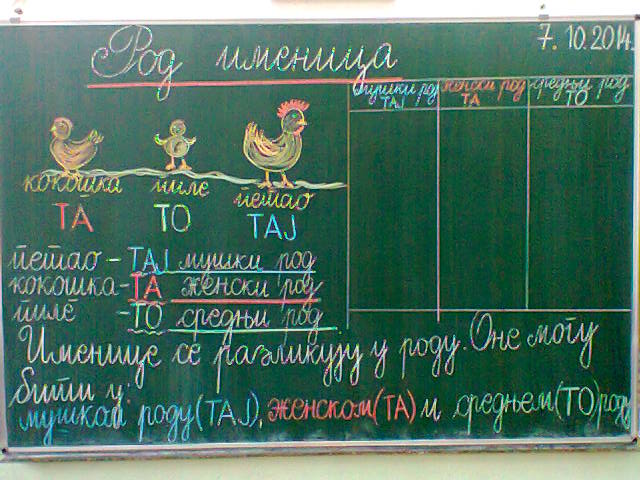 7. 10. 2014.
Род именица
мушки род женски род средњи род
ТАЈ ТА ТО
кокошка пиле петао
ТА ТО ТАЈ
петао - ТАЈ мушки род
кокошка - ТА женски род
пиле - ТО средњи род
Именице се разликују у роду. Оне могу
бити у:
мушком роду (ТАЈ), женском (ТА) и средњем (ТО) роду